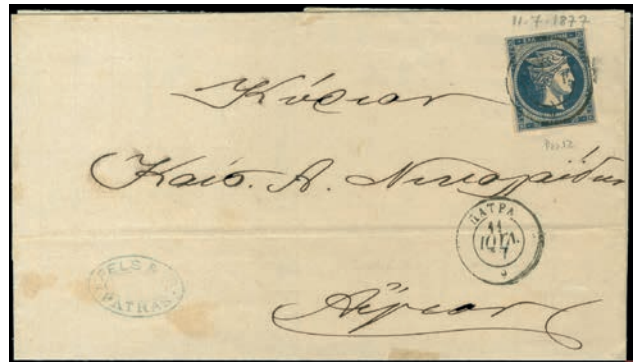 11-7-1877
Κύριον
Α. Νικολαΐδην
ΠΑΤΡΑ
11
ΙΟΥΛ.
FELS &
PATRAS
Αἴγιον